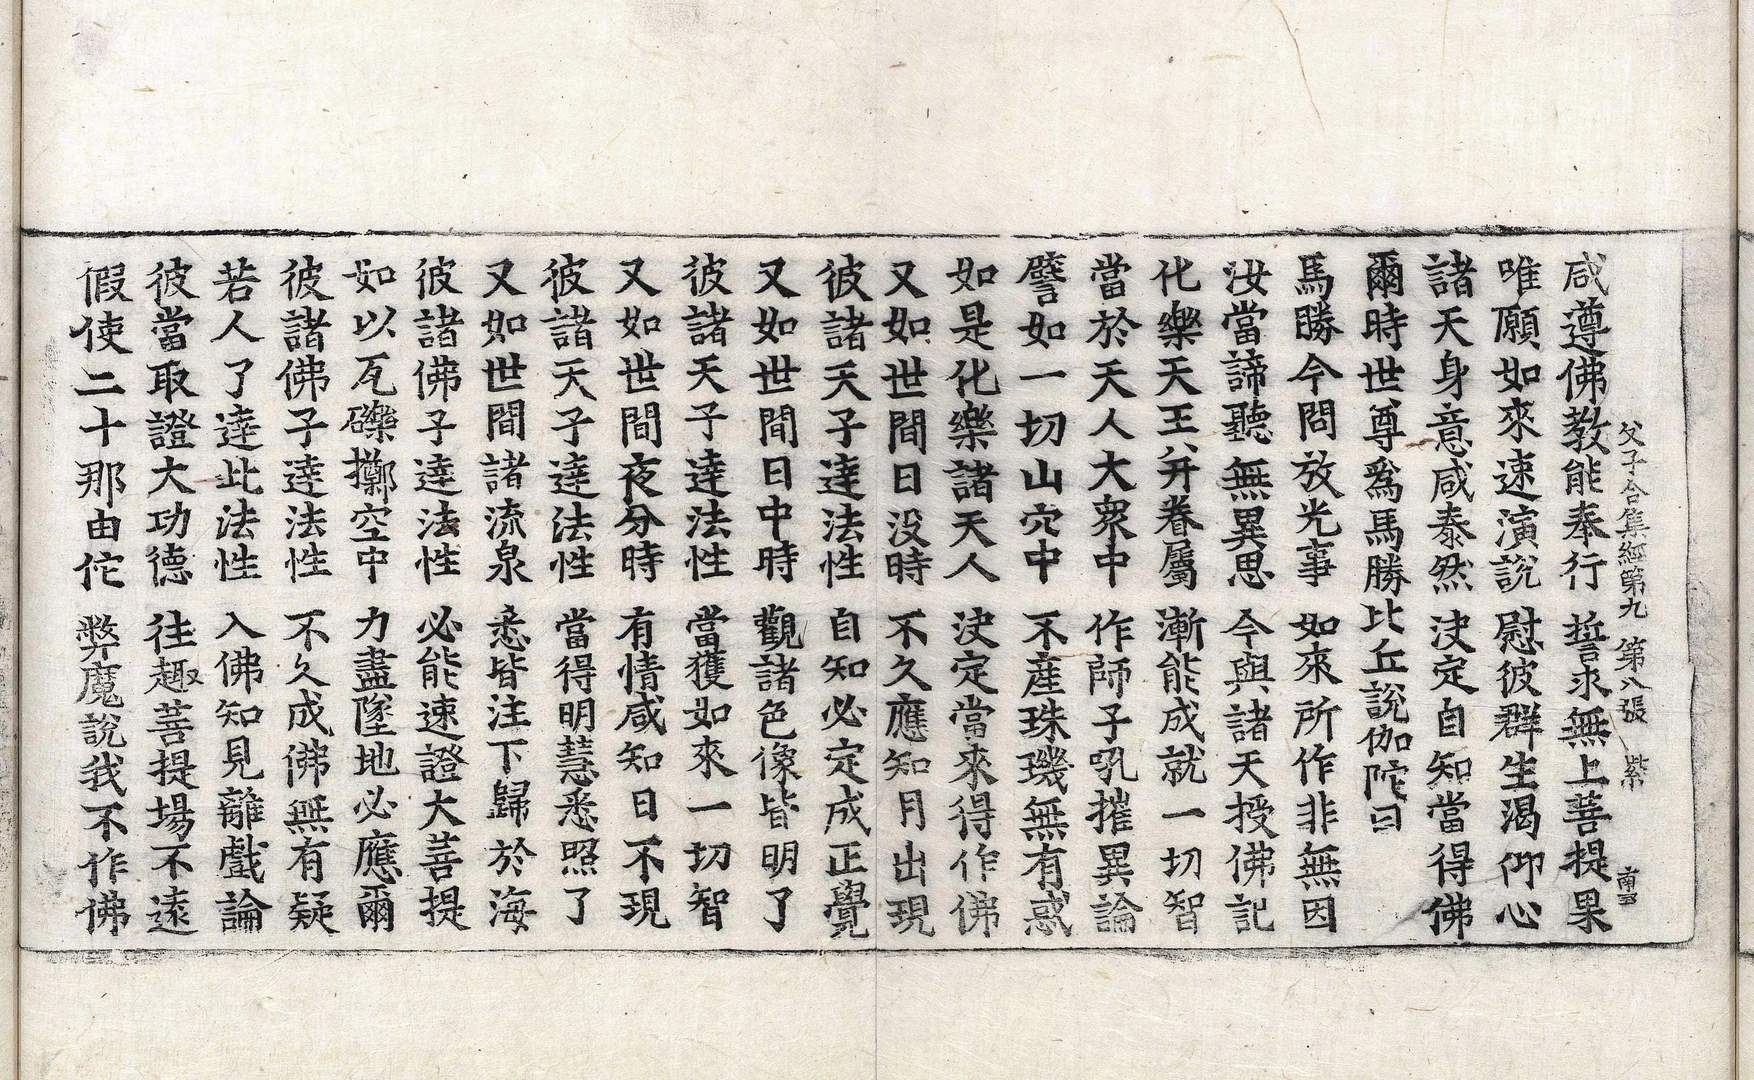 父子合集經第九 第八張 紫
咸遵佛教能奉行 誓求無上菩提果
唯願如來速演說 慰彼群生渴仰心
諸天身意咸泰然 決定自知當得佛
爾時世尊爲馬勝比丘說伽陀曰
馬勝今問放光事 如來所作非無因
汝當諦聽無異思 今與諸天授佛記
化樂天王并眷屬 漸能成就一切智
當於天人大衆中 作師子吼摧異論
譬如一切山穴中 不産珠璣無有惑
如是化樂諸天人 決定當來得作佛
又如世間日没時 不久應知月出現
彼諸天子達法性 自知必定成正覺
又如世間日中時 觀諸色像皆明了
彼諸天子達法性 當獲如來一切智
又如世間夜分時 有情咸知日不現
彼諸天子達法性 當得明慧悉照了
又如世間諸流泉 悉皆注下歸於海
彼諸佛子達法性 必能速證大菩提
如以瓦礫擲空中 力盡墜地必應爾
彼諸佛子達法性 不久成佛無有疑
若人了達此法性 入佛知見離戲論
彼當取證大功德 往趣菩提場不遠
假使二十那由佗 弊魔說我不作佛